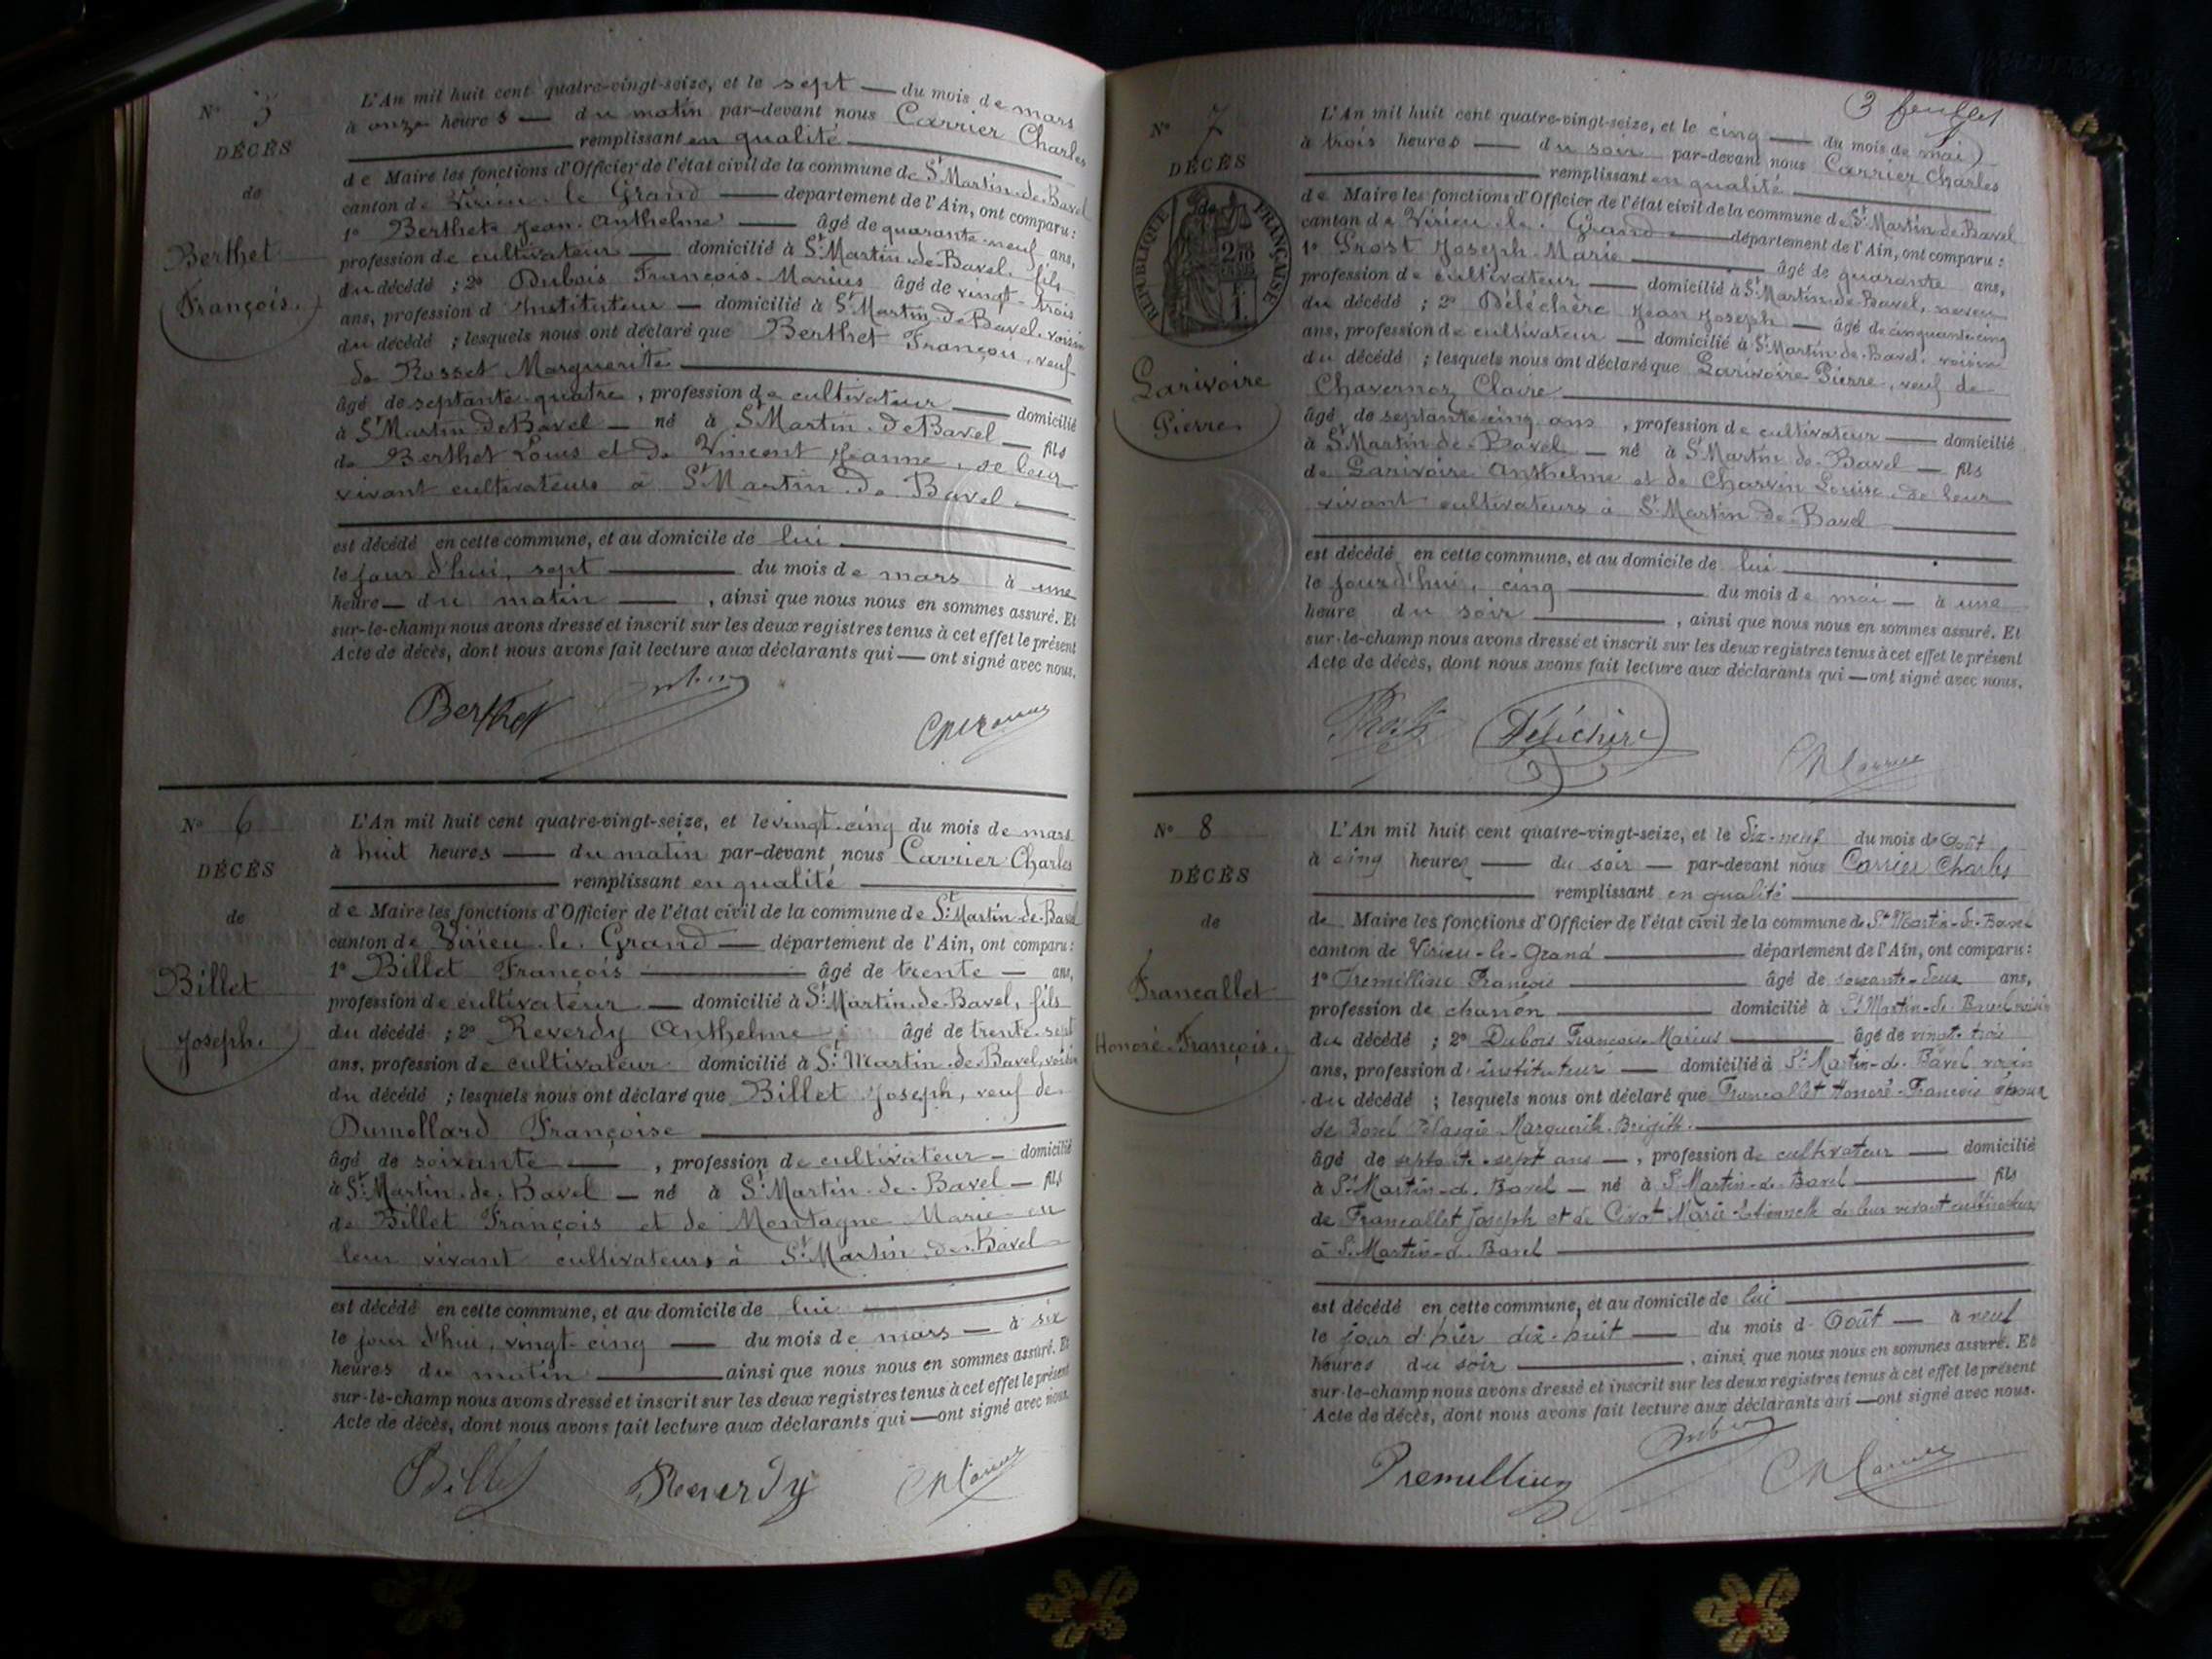 N° 5
DÉCÈS
de
Berthet
François.
L'An mil huit cent quatre-vingt-seize, et le sept — du mois de mars
à onze heures — du matin par-devant nous Carrier Charles
remplissant en qualité
de Maire les fonctions d'Officier de l'état civil de la commune de St Martin-de-Bavel
canton de Virieu-le-Grand — département de l'Ain, ont comparu :
1° Berthet Jean-Anthelme — âgé de quarante-neuf ans,
profession de cultivateur — domicilié à St Martin-de-Bavel, fils
du décédé ; 2° Dubois François-Marius âgé de vingt-trois
ans, profession d'Instituteur — domicilié à St Martin-de-Bavel, voisin
du décédé ; lesquels nous ont déclaré que Berthet François, veuf
de Rosset Marguerite
âgé de septante-quatre, profession de cultivateur — domicilié
à St Martin de Bavel — né à St Martin-de Bavel — fils
de Berthet Louis et de Vincent Jeanne, de leur
vivant cultivateurs à St Martin-de Bavel
est décédé en cette commune, et au domicile de lui
le jour d'hui, sept — du mois de mars à une
heure — du matin — , ainsi que nous nous en sommes assuré. Et
sur-le-champ nous avons dressé et inscrit sur les deux registres tenus à cet effet le présent
Acte de décès, dont nous avons fait lecture aux déclarants qui — ont signé avec nous.
Berthet
N° 6
DÉCÈS
de
Billet
Joseph.
L'An mil huit cent quatre-vingt-seize, et le vingt-cinq du mois de mars
à huit heures — du matin par-devant nous Carrier Charles
remplissant en qualité
de Maire les fonctions d'Officier de l'état civil de la commune de St Martin-de-Bavel
canton de Virieu-le-Grand — département de l'Ain, ont comparu :
1° Billet François — âgé de trente — ans,
profession de cultivateur — domicilié à St Martin-de-Bavel, fils
du décédé ; 2° Reverdy Anthelme âgé de trente-sept
ans, profession de cultivateur domicilié à St Martin-de-Bavel, voisin
du décédé ; lesquels nous ont déclaré que Billet Joseph, veuf de
Dumollard Françoise
âgé de soixante — , profession de cultivateur — domicilié
à St Martin-de-Bavel — né à St Martin-de-Bavel — fils
de Billet François et de Montagne Marie en
leur vivant cultivateurs à St Martin-de-Bavel
est décédé en cette commune, et au domicile de lui
le jour d'hui, vingt-cinq — du mois de mars — à six
heures du matin — ainsi que nous nous en sommes assuré. Et
sur-le-champ nous avons dressé et inscrit sur les deux registres tenus à cet effet le présent
Acte de décès, dont nous avons fait lecture aux déclarants qui — ont signé avec nous.
Billet Reverdy Ch Carrier
3 feuillet
N° 7
DÉCÈS
de
RÉPUBLIQUE FRANÇAISE
Larivoire
Pierre.
L'An mil huit cent quatre-vingt-seize, et le cinq — du mois de mai
à trois heures — du soir par-devant nous Carrier Charles
remplissant en qualité
de Maire les fonctions d'Officier de l'état civil de la commune de St Martin-de-Bavel
canton de Virieu-le-Grand — département de l'Ain, ont comparu :
1° Prost Joseph-Marie — âgé de quarante ans,
profession de cultivateur — domicilié à St Martin-de-Bavel, neveu
du décédé ; 2° Déléchère Jean Joseph — âgé de cinquante-cinq
ans, profession de cultivateur — domicilié à St Martin-de-Bavel, voisin
du décédé ; lesquels nous ont déclaré que Larivoire Pierre, veuf de
Chavernoz Claire
âgé de septante-cinq ans, profession de cultivateur — domicilié
à St Martin-de-Bavel — né à St Martin-de-Bavel — fils
de Larivoire Anthelme et de Charvin Louise, de leur
vivant cultivateurs à St Martin-de-Bavel
est décédé en cette commune, et au domicile de lui
le jour d'hui, cinq — du mois de mai — à une
heure du soir — , ainsi que nous nous en sommes assuré. Et
sur-le-champ nous avons dressé et inscrit sur les deux registres tenus à cet effet le présent
Acte de décès, dont nous avons fait lecture aux déclarants qui — ont signé avec nous.
Déléchère Ch Carrier
N° 8
DÉCÈS
de
Francallet
Honoré-François.
L'An mil huit cent quatre-vingt-seize, et le dix-neuf du mois de Août
à cinq heures — du soir — par-devant nous Carrier Charles
remplissant en qualité
de Maire les fonctions d'Officier de l'état civil de la commune de St Martin-de-Bavel
canton de Virieu-le-Grand — département de l'Ain, ont comparu :
1° Premillieu François — âgé de soixante-deux ans,
profession de charron — domicilié à St Martin-de-Bavel voisin
du décédé ; 2° Dubois François Marius — âgé de vingt-trois
ans, profession d'instituteur — domicilié à St Martin-de-Bavel voisin
du décédé ; lesquels nous ont déclaré que Francallet Honoré-François époux
de Pélagie Marguerite Brigitte.
âgé de septante-sept ans — , profession de cultivateur — domicilié
à St Martin-de-Bavel — né à St Martin-de-Bavel — fils
de Francallet Joseph et de Marie Etiennette de leur vivant cultivateurs
à St Martin-de-Bavel
est décédé en cette commune, et au domicile de lui
le jour d'hier dix-huit — du mois d'Août — à neuf
heures du soir — , ainsi que nous nous en sommes assuré. Et
sur-le-champ nous avons dressé et inscrit sur les deux registres tenus à cet effet le présent
Acte de décès, dont nous avons fait lecture aux déclarants qui — ont signé avec nous.
Premillieu Ch Carrier